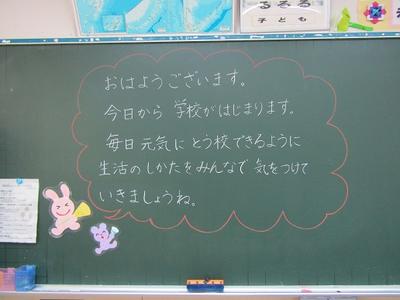 おはようございます。
今日から 学校がはじまります。
毎日 元気に とう校できるように
生活の しかたを みんなで 気をつけて
いきましょうね。
子ども